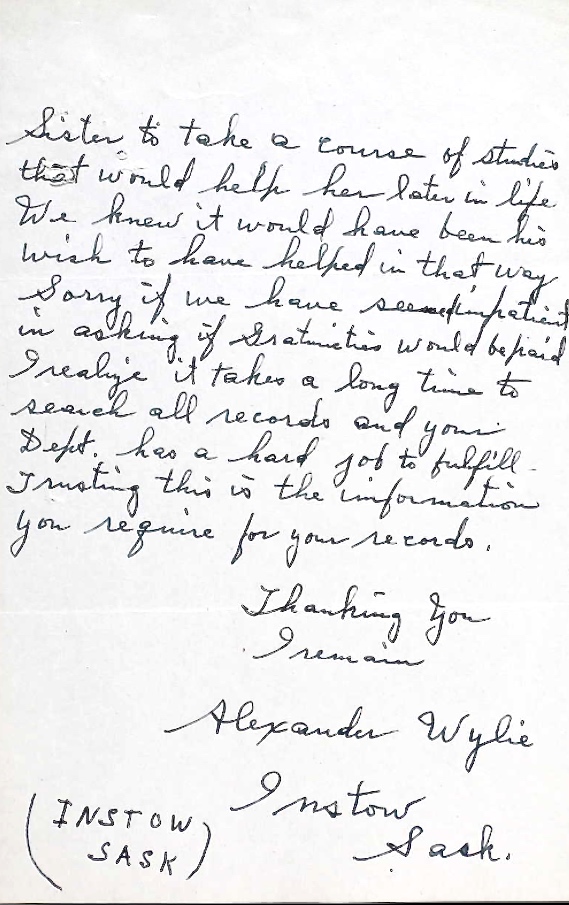 Sister to take a course of studies
that would help her later in life
We knew it would have been his
wish to have helped in that way
Sorry if we have seemed impatient
in asking if Gratuities would be paid
I realize it takes a long time to
search all records and your
Dept. has a hard job to fulfill.
Trusting this is the information
you require for your records.
Thanking You
I remain
Alexander Wylie
Instow
Sask.
(INSTOW
SASK)